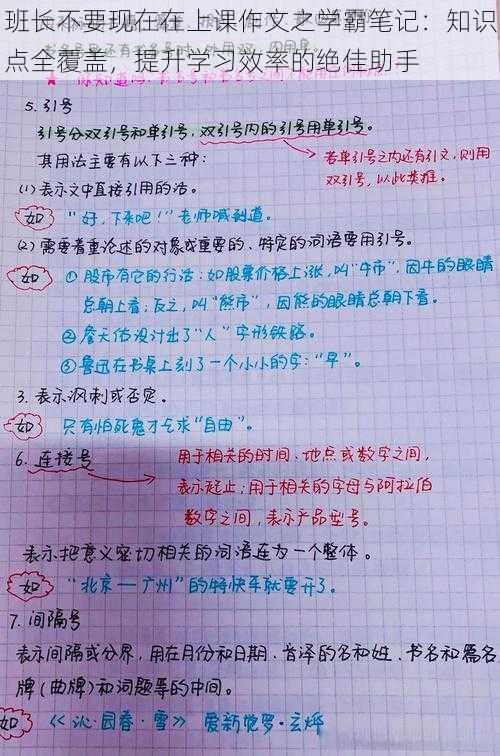 班长不要现在在上课作文之学霸笔记：知识
点全覆盖，提升学习效率的绝佳助手
5.引号
引号分双引号和单引号，双引号内的引号用单引号。
其用法主要有以下三种：
若单引号之内还有引文，则用
双引号，以此类推。
(1)表示文中直接引用的话。
如 "好，下来吧！"老师喊到道。
(2)需要着重论述的对象或重要的、特定的词语要用引号。
如 ①股市有它的行话：如股票价格上涨，叫"牛市"，因牛的眼睛
总朝上看；反之，叫"熊市"，因熊的眼睛总朝下看。
②詹天佑设计出了"人"字形铁路。
③鲁迅在书桌上刻了一个小小的字："早"。
3.表示讽刺或否定。
如 只有怕死鬼才乞求"自由"。
6.连接号
用于相关的时间、地点或数字之间，
表示起止；用于相关的字母与阿拉伯
数字之间，表示产品型号。
表示把意义密切相关的词语连为一个整体。
如 "北京—广州"的特快车就要开了。
7.间隔号
表示间隔或分界，用在月份和日期、音译的名和姓、书名和篇名
牌(曲牌)和词题等的中间。
如 《沁·园春·雪》 爱新觉罗·玄烨